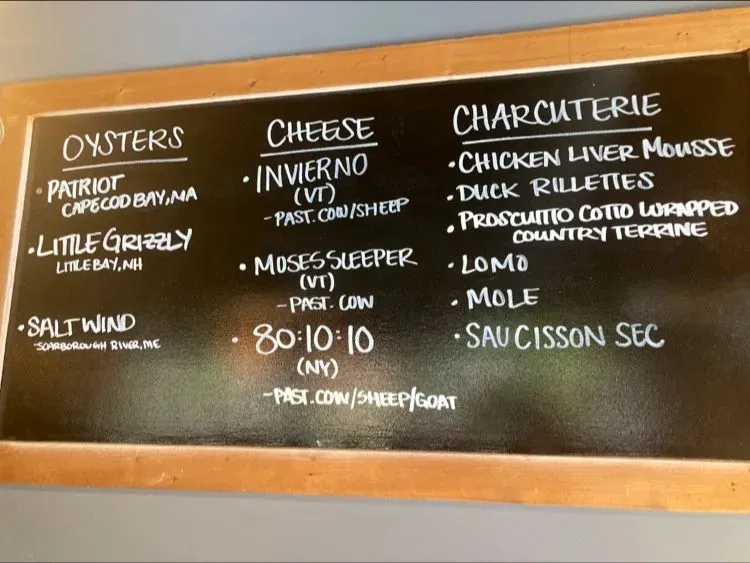 OYSTERS
• PATRIOT
CAPE COD BAY, MA
• LITTLE GRIZZLY
LITTLE BAY, NH
• SALT WIND
SCARBOROUGH RIVER, ME
CHEESE
• INVIERNO
(VT)
- PAST. COW/SHEEP
• MOSES SLEEPER
(VT)
- PAST. COW
• 80:10:10
(NY)
- PAST. COW/SHEEP/GOAT
CHARCUTERIE
• CHICKEN LIVER MOUSSE
• DUCK RILLETTES
• PROSCUITTO COTTO WRAPPED
COUNTRY TERRINE
• LOMO
• MOLE
• SAUCISSON SEC